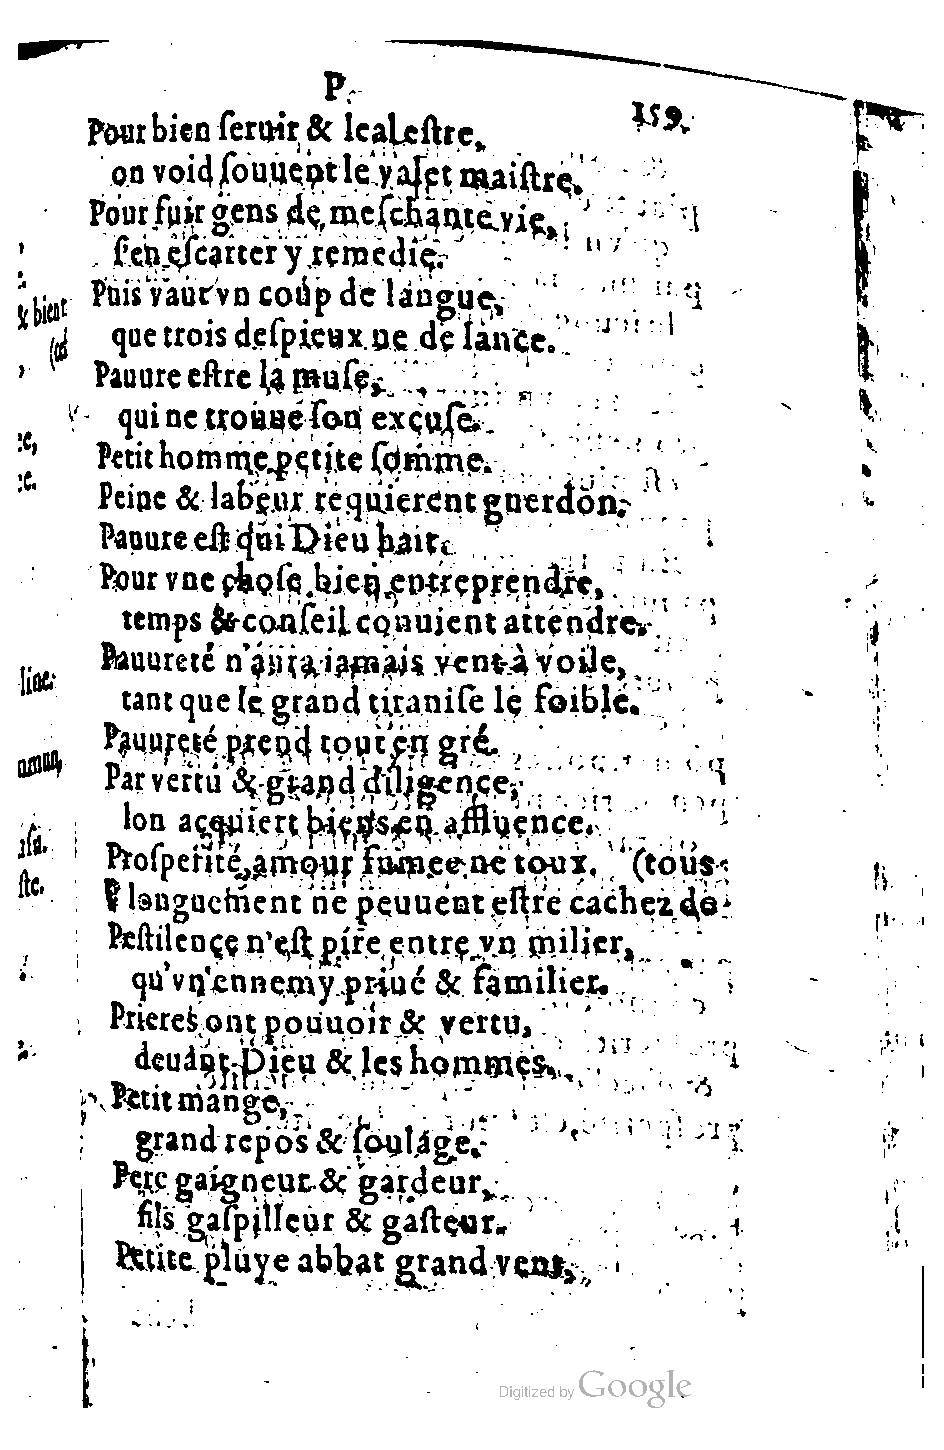 P.
159.
Pour bien ſeruir & lealeſtre,
on void ſouuent le valet maiſtre.
Pour fuir gens de meſchante vie,
ſ'en eſcarter y remedie.
Puis vaut vn coup de langue,
que trois deſpieux ne de lance.
Pauure eſtre la muſe,
qui ne trouue ſon excuſe.
Petit homme petite ſomme.
Peine & labeur requierent guerdon.
Pauure eſt qui Dieu hait.
Pour vne choſe bien entreprendre,
temps & conſeil conuient attendre.
Pauureté n'aura iamais vent à voile,
tant que le grand tiraniſe le foible.
Pauureté prend tout en gré.
Par vertu & grand diligence,
lon acquiert biens en affluence.
Proſperité, amour fumee ne toux. (tous
longuement ne peuuent eſtre cachez de
Peſtilence n'eſt pire entre vn milier,
qu'vn ennemy priué & familier.
Prieres ont pouuoir & vertu,
deuant Dieu & les hommes.
Petit mange,
grand repos & ſoulage.
Pere gaigneur & gardeur,
fils gaſpilleur & gaſteur.
Petite pluye abbat grand vent,
& bient
line.
Digitized by Google